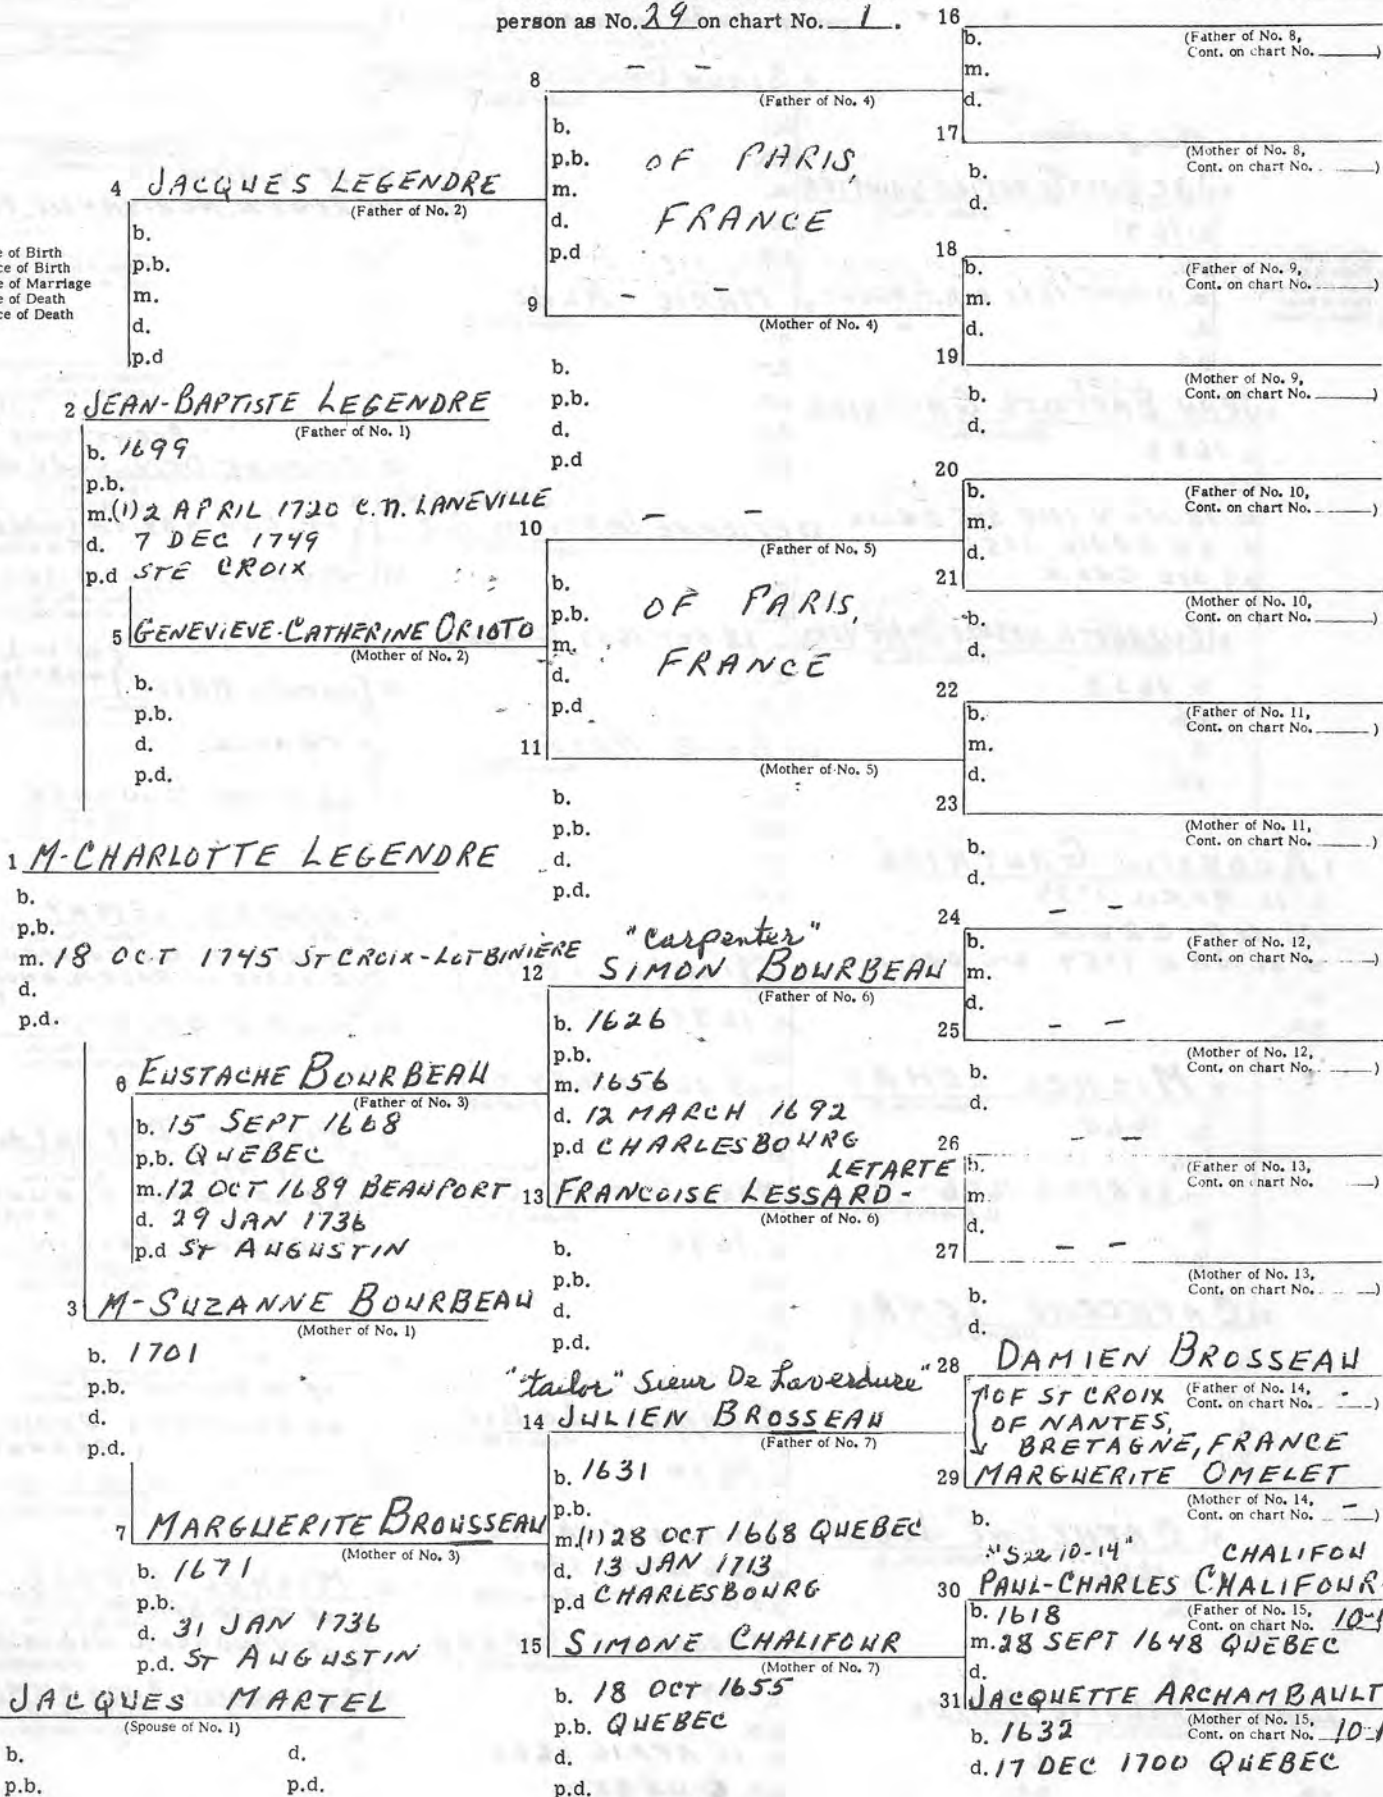 person as No. 29 on chart No. 1.
e of Birth
ce of Birth
e of Marriage
e of Death
ce of Death
4 JACQUES LEGENDRE
(Father of No. 2)
b.
p.b.
m.
d.
p.d
2 JEAN-BAPTISTE LEGENDRE
(Father of No. 1)
b. 1699
p.b.
m.(1) 2 APRIL 1720 C.M. LANEVILLE
d. 7 DEC 1749
p.d STE CROIX
5 GENEVIEVE-CATHERINE ORIOTO
(Mother of No. 2)
b.
p.b.
d.
p.d.
1 M-CHARLOTTE LEGENDRE
b.
p.b.
m. 18 OCT 1745 ST CROIX-LOTBINIÈRE
d.
p.d.
6 EUSTACHE BOURBEAU
(Father of No. 3)
b. 15 SEPT 1668
p.b. QUEBEC
m. 12 OCT 1689 BEAUPORT
d. 29 JAN 1736
p.d ST AUGUSTIN
3 M-SUZANNE BOURBEAU
(Mother of No. 1)
b. 1701
p.b.
d.
p.d.
7 MARGUERITE BROUSSEAU
(Mother of No. 3)
b. 1671
p.b.
d. 31 JAN 1736
p.d. ST AUGUSTIN
JACQUES MARTEL
(Spouse of No. 1)
b. d.
p.b. p.d.
8 - -
(Father of No. 4)
b.
p.b. OF PARIS,
m.
d. FRANCE
p.d
9 - -
(Mother of No. 4)
b.
p.b.
d.
p.d
10 - -
(Father of No. 5)
b.
p.b. OF PARIS,
m.
d. FRANCE
p.d
11
(Mother of No. 5)
b.
p.b.
d.
p.d.
"Carpenter"
12 SIMON BOURBEAU
(Father of No. 6)
b. 1626
p.b.
m. 1656
d. 12 MARCH 1692
p.d CHARLESBOURG
LETARTE
13 FRANCOISE LESSARD-
(Mother of No. 6)
b.
p.b.
d.
p.d.
"tailor" Sieur De Laverdure"
14 JULIEN BROSSEAU
(Father of No. 7)
b. 1631
p.b.
m.(1) 28 OCT 1668 QUEBEC
d. 13 JAN 1713
p.d CHARLESBOURG
15 SIMONE CHALIFOUR
(Mother of No. 7)
b. 18 OCT 1655
p.b. QUEBEC
d.
p.d.
16
b. (Father of No. 8,
Cont. on chart No. )
m.
d.
17
(Mother of No. 8,
b. Cont. on chart No. )
d.
18
b. (Father of No. 9,
Cont. on chart No. )
m.
d.
19
(Mother of No. 9,
b. Cont. on chart No. )
d.
20
b. (Father of No. 10,
Cont. on chart No. )
m.
d.
21
(Mother of No. 10,
b. Cont. on chart No. )
d.
22
b. (Father of No. 11,
Cont. on chart No. )
m.
d.
23
(Mother of No. 11,
b. Cont. on chart No. )
d.
24 - -
b. (Father of No. 12,
Cont. on chart No. )
m.
d.
25 - -
(Mother of No. 12,
b. Cont. on chart No. )
d.
26 - -
b. (Father of No. 13,
Cont. on chart No. )
m.
d.
27 - -
(Mother of No. 13,
b. Cont. on chart No. )
d.
28 DAMIEN BROSSEAU
OF ST CROIX (Father of No. 14,
Cont. on chart No. - )
OF NANTES,
BRETAGNE, FRANCE
29 MARGUERITE OMELET
(Mother of No. 14,
b. Cont. on chart No. - )
"See 10-14" CHALIFOU
30 PAUL-CHARLES CHALIFOUR-
b. 1618 (Father of No. 15,
Cont. on chart No. 10-1
m. 28 SEPT 1648 QUEBEC
d.
31 JACQUETTE ARCHAMBAULT
(Mother of No. 15,
b. 1632 Cont. on chart No. 10-1
d. 17 DEC 1700 QUEBEC